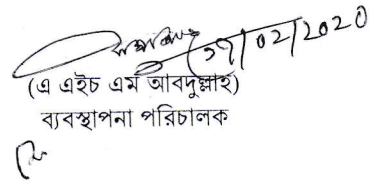 27/02/2020
(এ এইচ এম আবদুল্লাহ)
ব্যবস্থাপনা পরিচালক